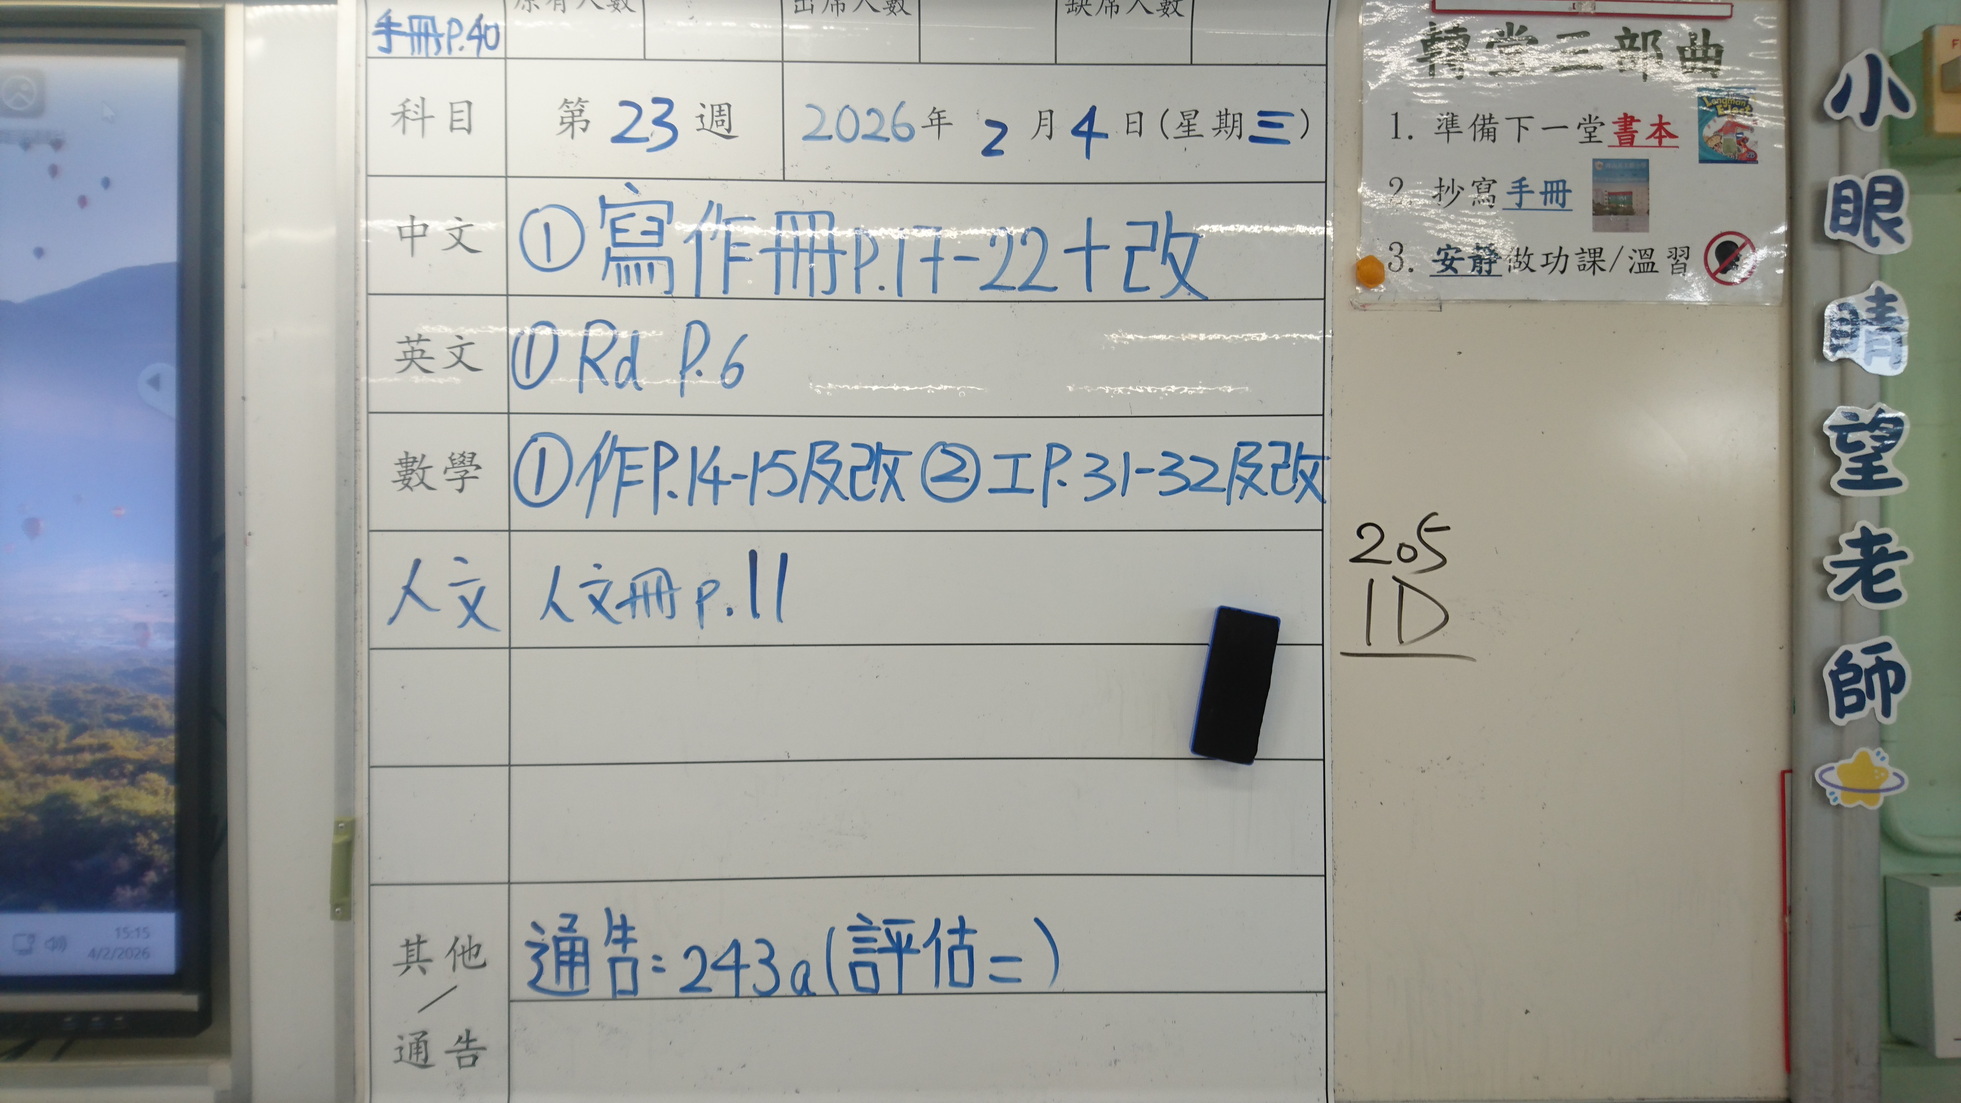 手冊P.40 原有人數 出席人數 缺席人數
科目 第23週 2026年2月4日(星期三)
中文 ①寫作冊P.17-22+改
英文 ①Rd P.6
數學 ①作P.14-15及改 ②工P.31-32及改
人文 人文冊p.11
其他/通告 通告:243a(評估二)
轉堂三部曲
1. 準備下一堂書本
2. 抄寫手冊
3. 安靜做功課/溫習
205
1D
小眼睛望老師
15:15
4/2/2026